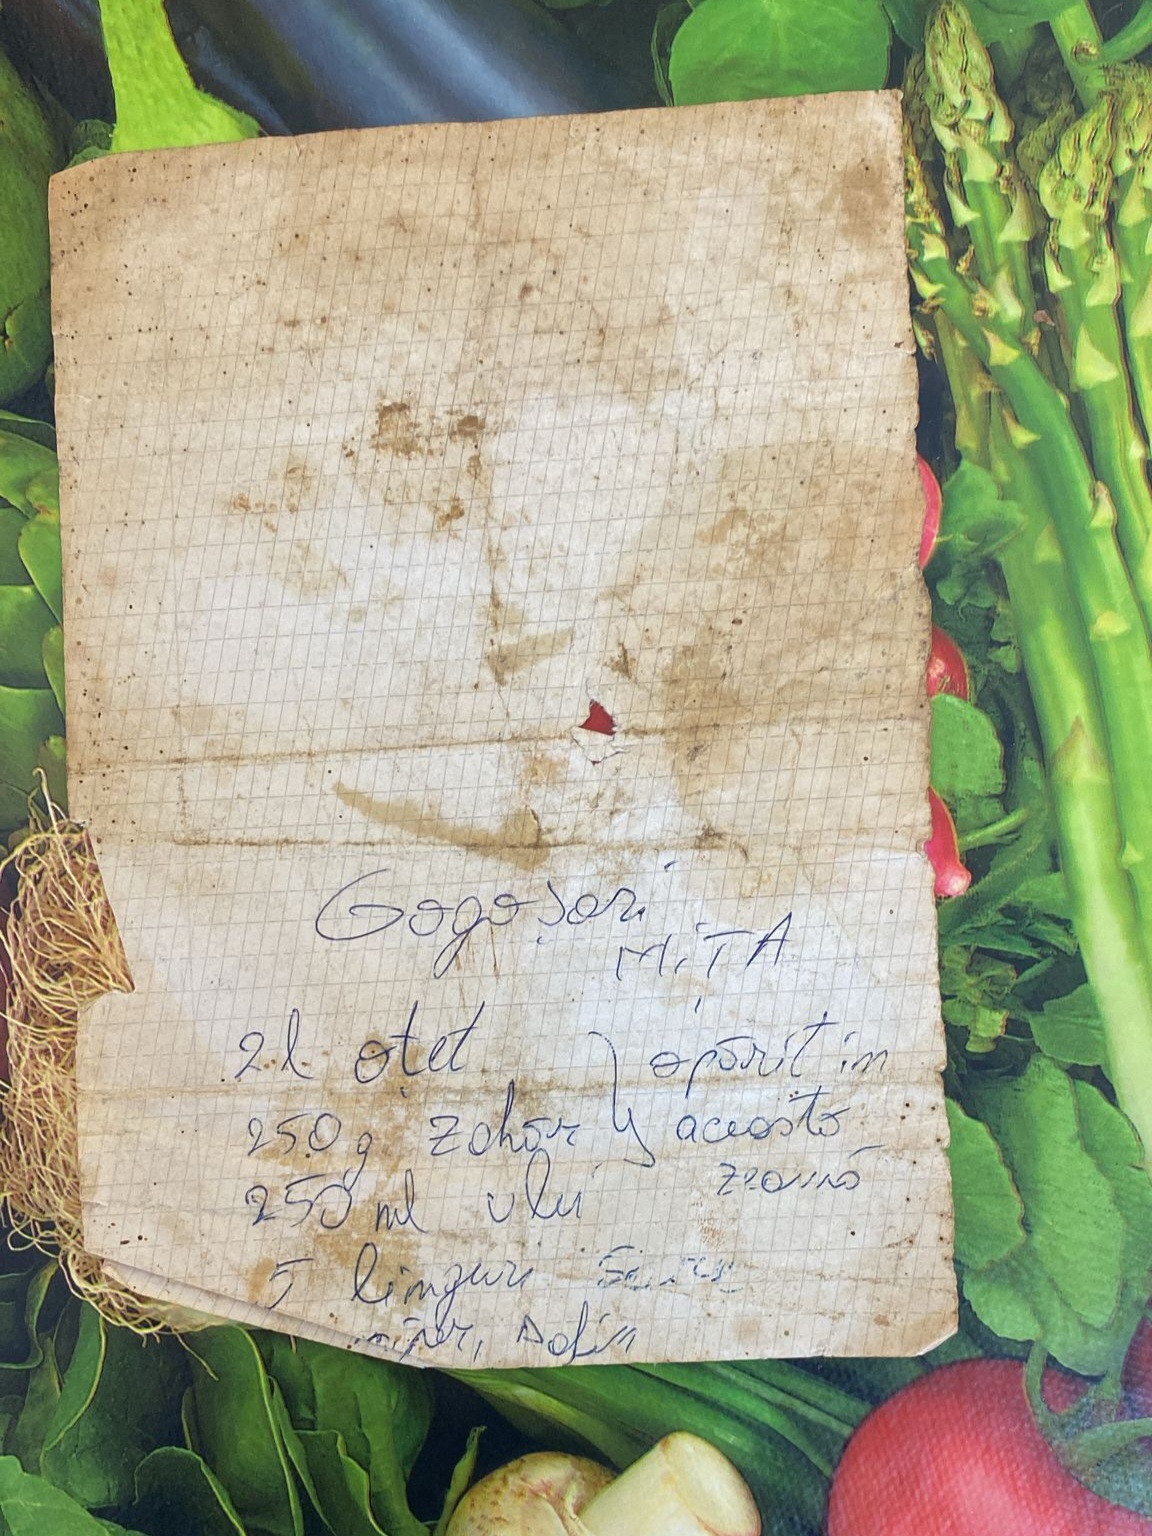 Gogoșari
MiTA
2 l oțet } opărit în
250 g zahăr } această
250 ml ulei zeamă
5 linguri sare
piper, dafin